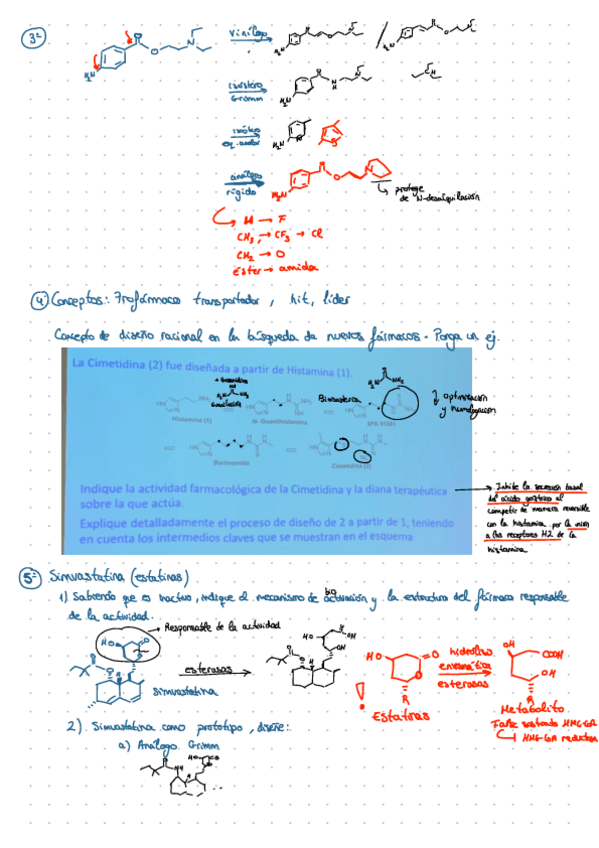 3º
vinílogo
/
isóstero
Grimm
H₂N
análogo
rígido
protege
de N-desalquilación
H → F
CH₃ → CF₃ → Cl
CH₂ → O
Éster → amida
4 Conceptos: Profármaco transportador, hit, líder
Concepto de diseño racional en la búsqueda de nuevos fármacos. Ponga un ej.
La Cimetidina (2) fue diseñada a partir de Histamina (1).
Bioisostería
optimización
y homologación
Histamina (1)
Burimamida
Cimetidina (2)
Indique la actividad farmacológica de la Cimetidina y la diana terapéutica
sobre la que actúa.
Explique detalladamente el proceso de diseño de 2 a partir de 1, teniendo
en cuenta los intermedios claves que se muestran en el esquema
Inhibe la secreción basal
del ácido gástrico al
competir de manera reversible
con la histamina por la unión
a los receptores H2 de la
histamina
5º Simvastatina (estatinas)
1) Sabiendo que es inactivo, indique el mecanismo de bioactivación y la estructura del fármaco responsable
de la actividad.
Responsable de la actividad
esterasas
simvastatina
HO
O
hidrólisis
enzimática
esterasas
OH
COOH
OH
R
R
!
Estatinas
Metabolito
HMG-CoA reductasa
2) Simvastatina como prototipo, diseñe:
a) Análogo Grimm